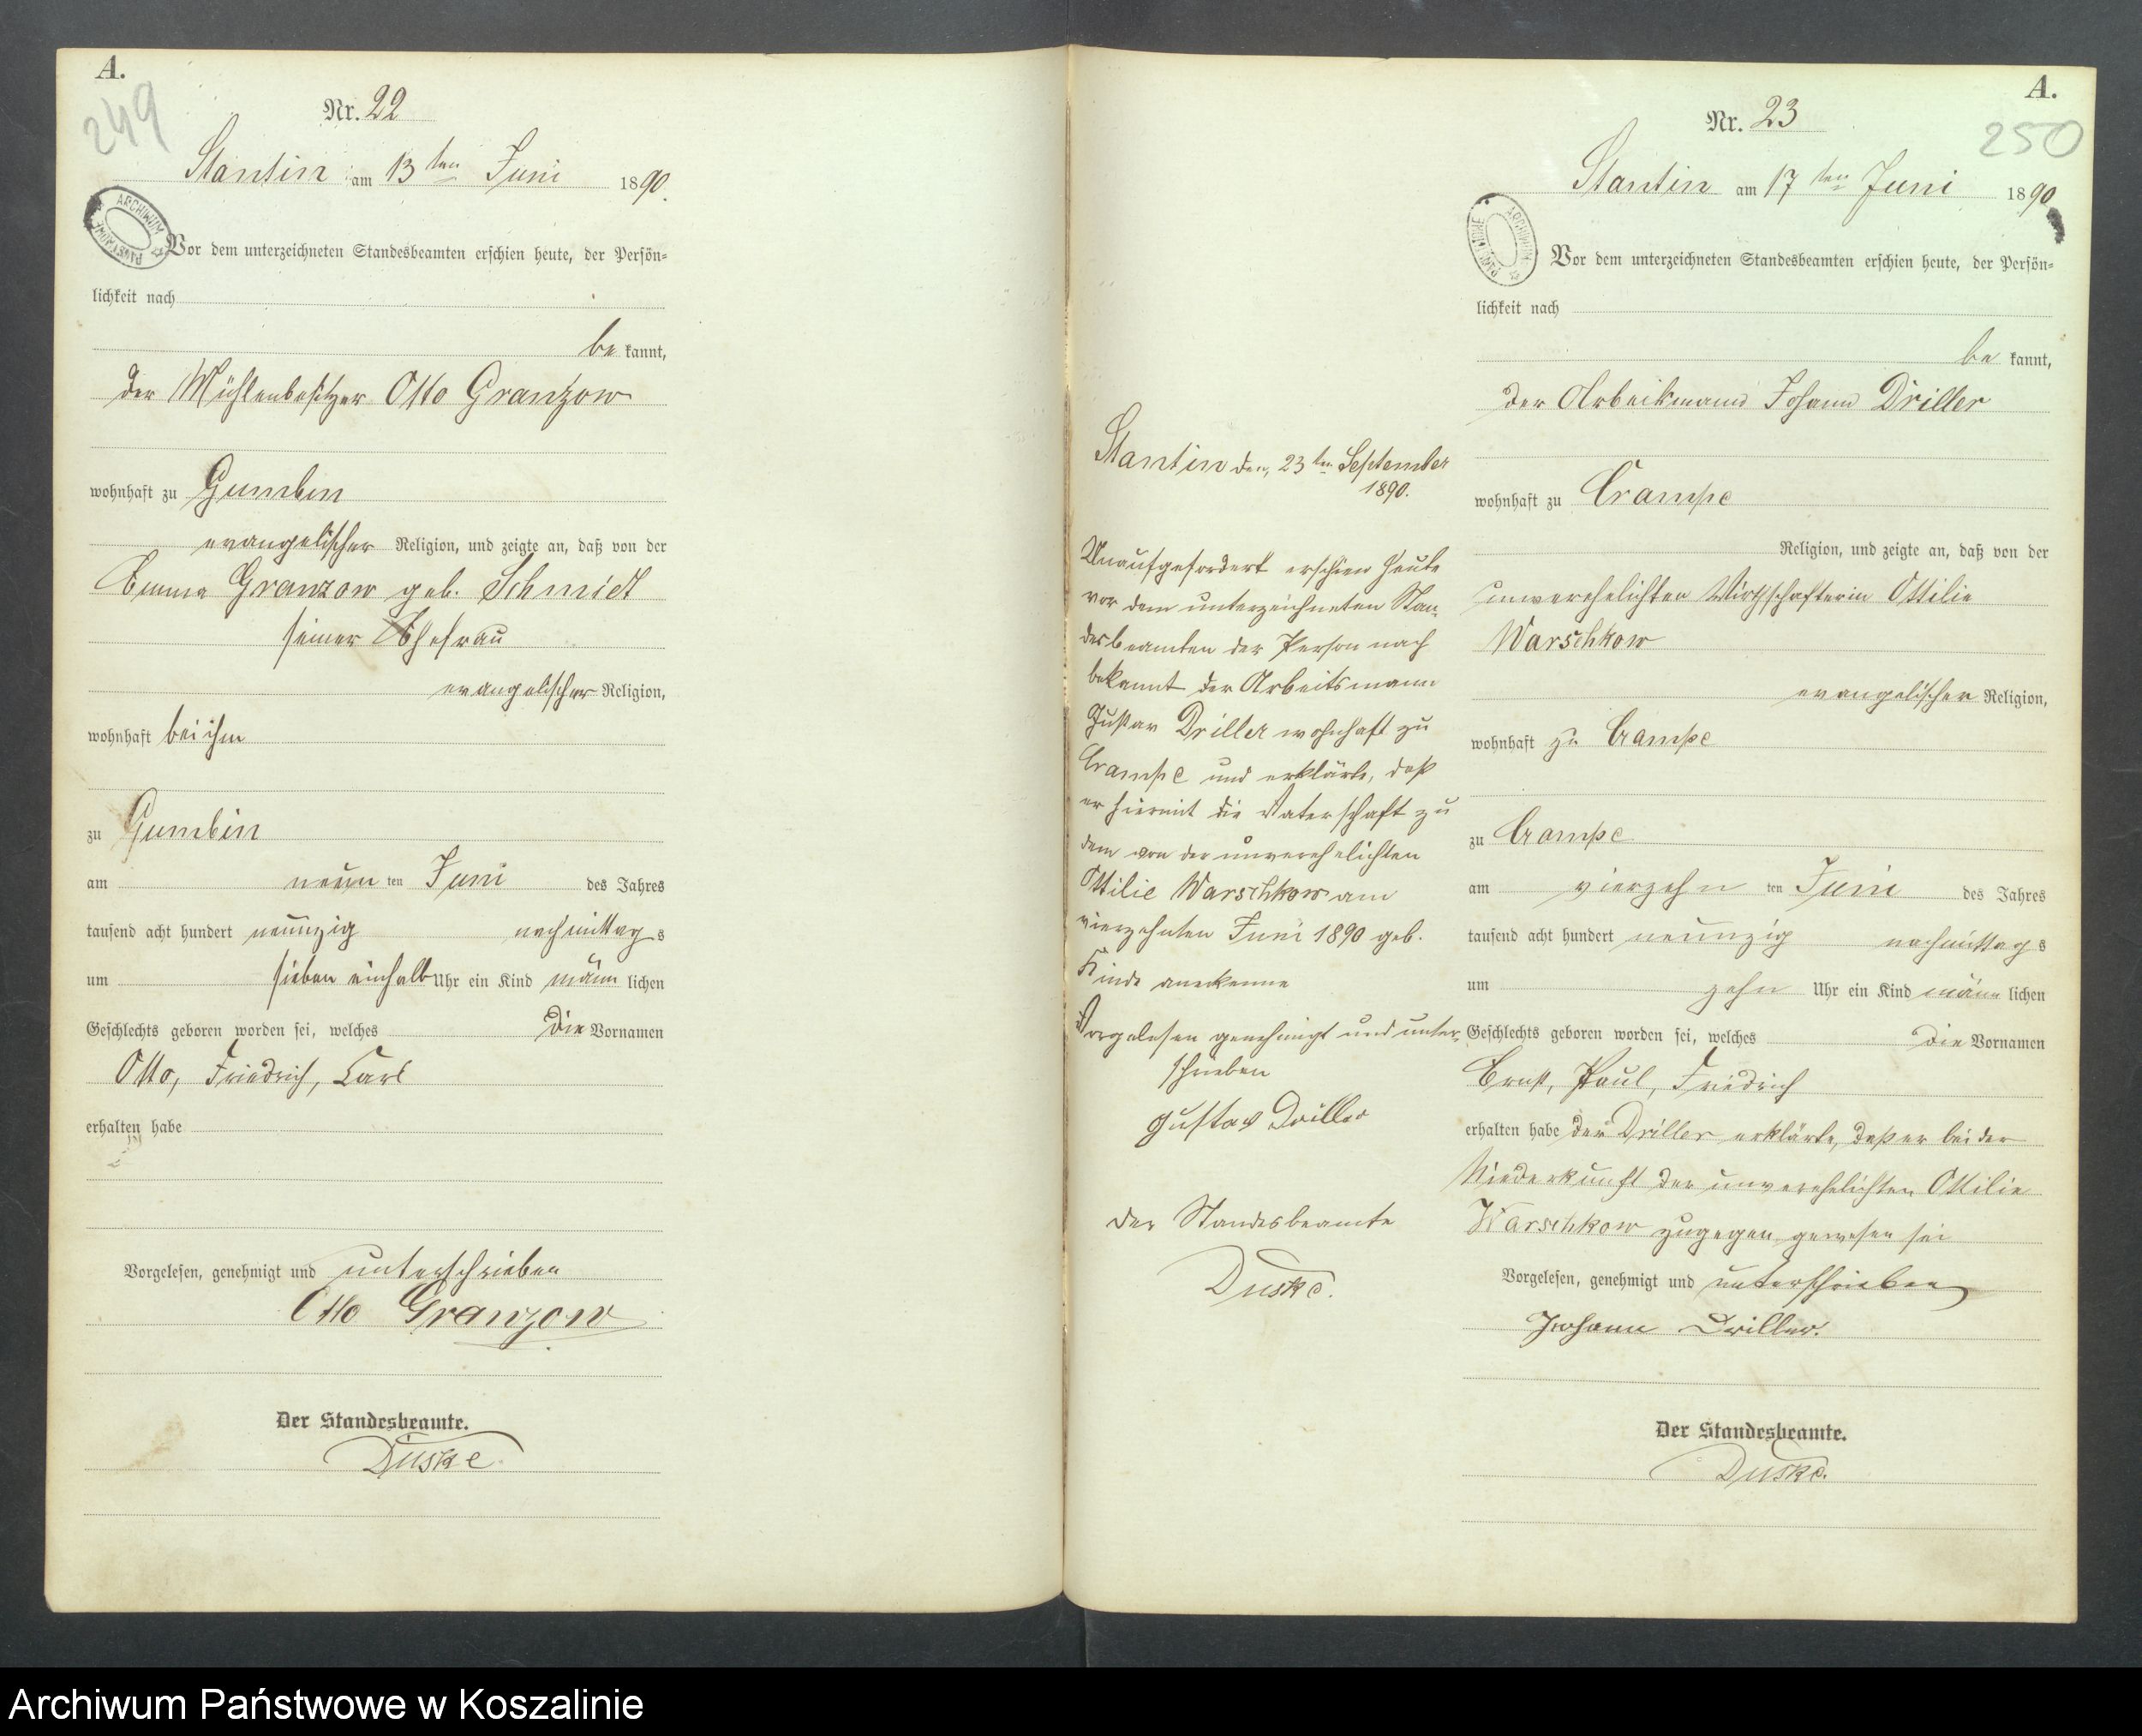 A.
249
Nr. 22
Stantin am 13 ten Juni 1890.
ARCHIWUM PAŃSTWOWE
Vor dem unterzeichneten Standesbeamten erschien heute, der Persön=
lichkeit nach
be kannt,
der Mühlenbesitzer Otto Granzow
wohnhaft zu Gumbin
evangelischer Religion, und zeigte an, daß von der
Emma Granzow geb. Schmidt
seiner Ehefrau
evangelischer Religion,
wohnhaft bei ihm
zu Gumbin
am neun ten Juni des Jahres
tausend acht hundert neunzig nachmittag s
um sieben einhalb Uhr ein Kind männ lichen
Geschlechts geboren worden sei, welches die Vornamen
Otto, Friedrich, Carl
erhalten habe
Vorgelesen, genehmigt und unterschrieben
Otto Granzow
Der Standesbeamte.
Duske
Stantin den, 23 ten September
1890.
Unaufgefordert erschien heute
vor dem unterzeichneten Stan-
desbeamten der Person nach
bekannt der Arbeitsmann
Gustav Driller wohnhaft zu
Crampe und erklärte, daß
er hiermit die Vaterschaft zu
dem von der unverehelichten
Ottilie Warschkow am
vierzehnten Juni 1890 geb.
Kinde anerkenne
Vorgelesen genehmigt und unter-
schrieben
Gustav Driller
Der Standesbeamte
Duske.
A.
250
Nr. 23
Stantin am 17 ten Juni 1890
ARCHIWUM PAŃSTWOWE
Vor dem unterzeichneten Standesbeamten erschien heute, der Persön=
lichkeit nach
be kannt,
der Arbeitsmann Johann Driller
wohnhaft zu Crampe
Religion, und zeigte an, daß von der
unverehelichten Wirthschafterin Ottilie
Warschkow
evangelischer Religion,
wohnhaft zu Crampe
zu Crampe
am vierzehn ten Juni des Jahres
tausend acht hundert neunzig nachmittag s
um zehn Uhr ein Kind männ lichen
Geschlechts geboren worden sei, welches die Vornamen
Ernst, Paul, Friedrich
erhalten habe der Driller erklärte, daß er bei der
Niederkunft der unverehelichten Ottilie
Warschkow zugegen gewesen sei
Vorgelesen, genehmigt und unterschrieben
Johann Driller.
Der Standesbeamte.
Duske.
Archiwum Państwowe w Koszalinie